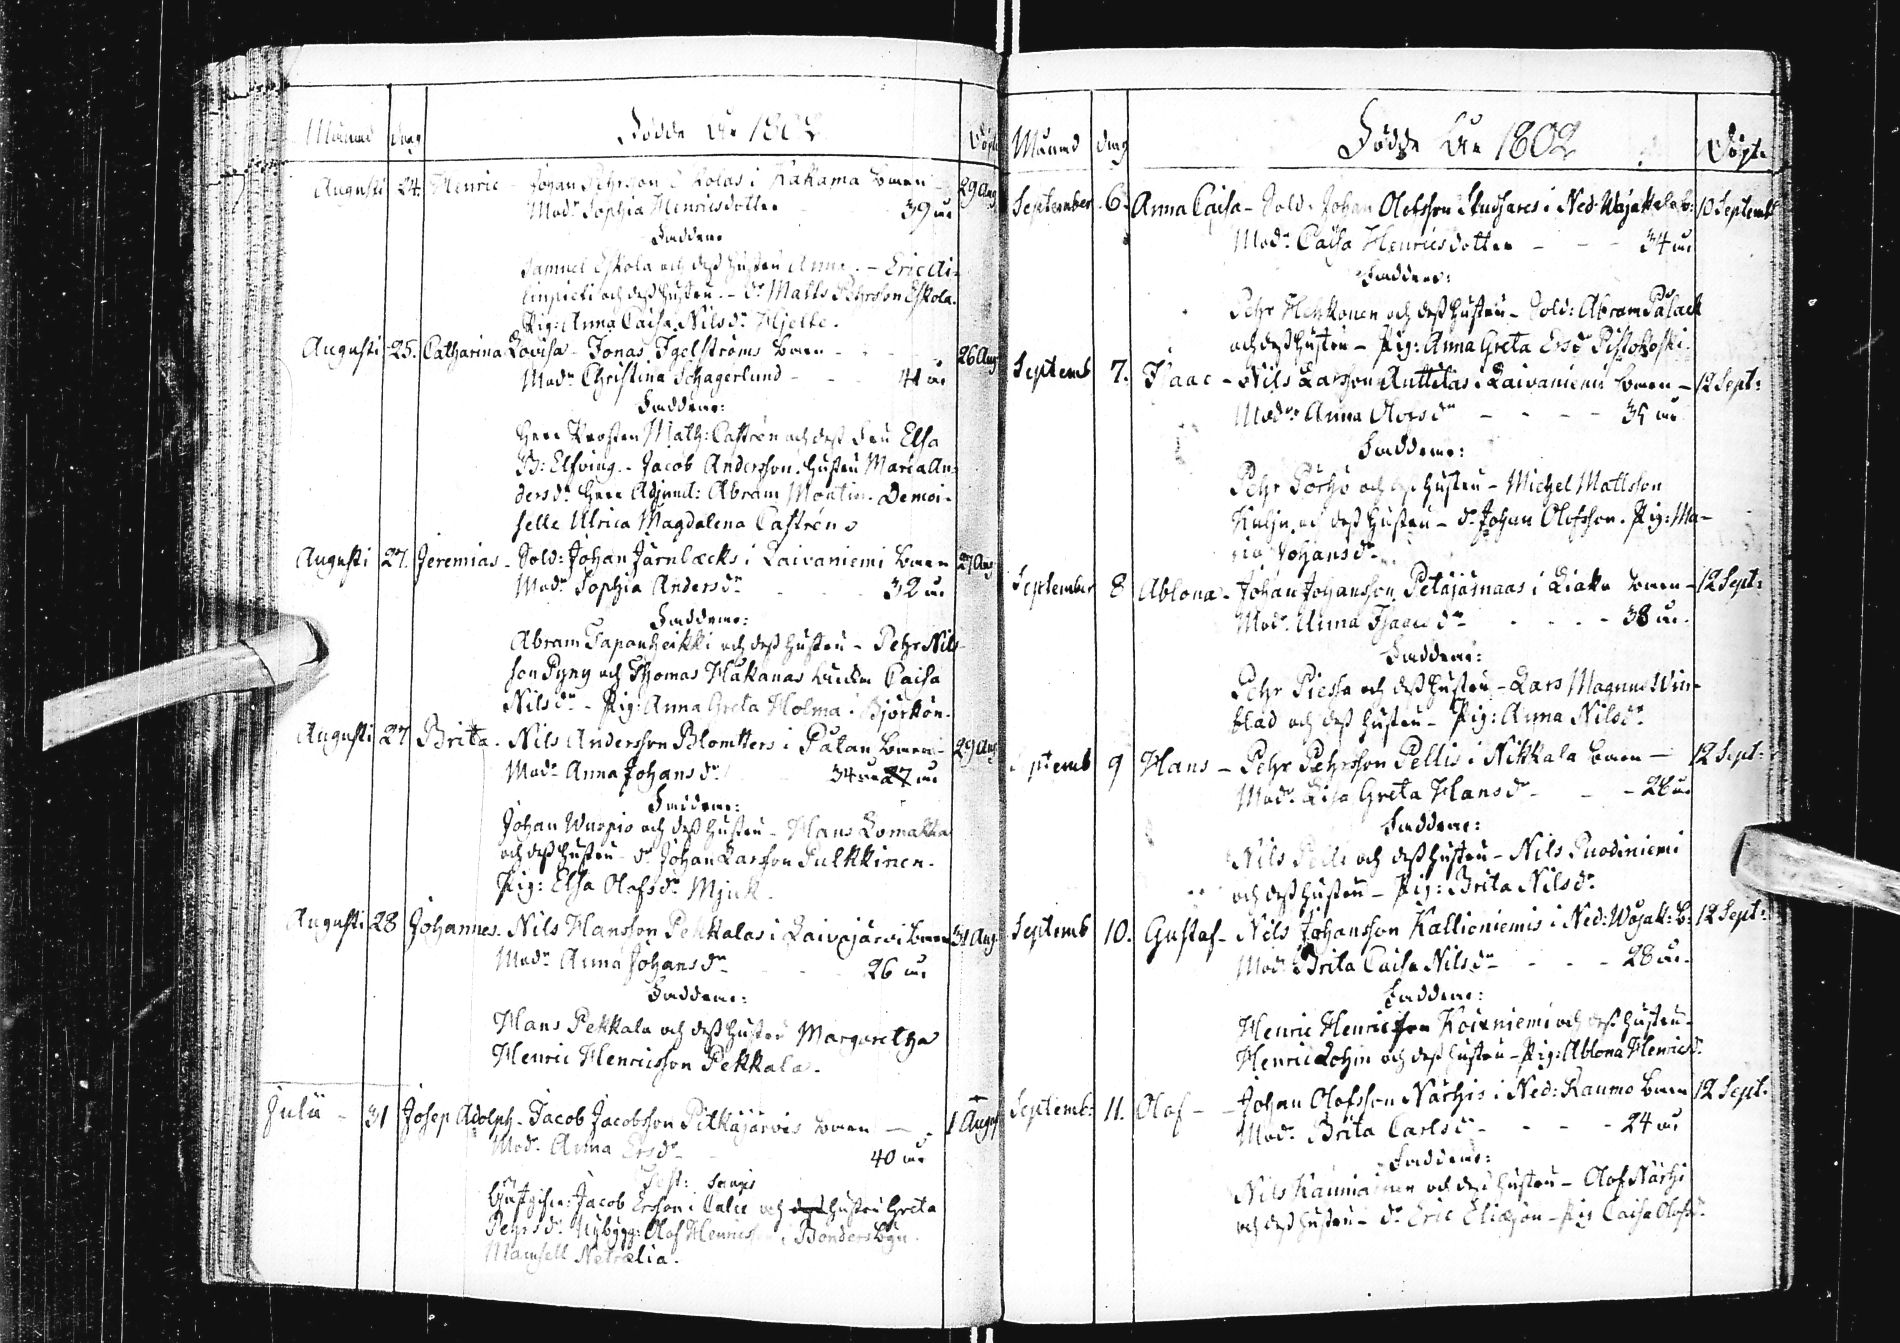 Månad dag Födde år 1802 Döpte
Augusti 24. Henric - Johan Pehrsson Eskolas i Kakama barn 29 Aug
Modr Sophia Henricsdotter 39 år
Faddrar
Samuel Eskola och dess hustru Anna. - Eric Ai-
och dess hustru. - dr Matts Pehrsson Eskola.
Pig: Anna Caisa Nilsdr Hjelte.
Augusti 25. Catharina Lovisa - Jonas Igelströms barn - 26 Aug
Modr Christina Schagerlund - - - 41 år
Faddrar:
Herr Prosten Math: Castrén och dess Fru Elsa
B: Elfving. - Jacob Andersson. hustru Maria An-
dersdr Herr Adjunct: Abram Montin. Demoi-
selle Ulrica Magdalena Castréns
Augusti 27. Jeremias - Sold: Johan Järnbäcks i Laivaniemi barn 29 Aug
Modr Sophia Andersdr - - - 32 år
Faddrar:
Abram Tapanheikki och dess hustru - Pehr Nils-
son Pyny och Thomas Hakanas Caisa
Nilsdr - Pig: Anna Greta Holma i Björkön.
Augusti 27 Brita. Nils Andersson Blomsters i Påtan barn - 29 Aug
Modr Anna Johansdr 34 år 27 år
Faddrar:
Johan Wuopio och dess hustru - Hans Lomakka
och dess hustru - dr Johan Larsson Pulkkinen.
Pig: Elsa Olofsdr Mjuk.
Augusti 28 Johannes. Nils Hansson Pekkalas i Laivajärvi barn 31 Aug
Modr Anna Johansdr - - - 26 år
Faddrar:
Hans Pekkala och dess hustru Margaretha
Henric Henricsson Pekkala.
Julii - 31 Josep Adolph - Jacob Jacobsson Pitkäjärvis barn - 1 Aug
Modr Anna Ersdr 40 år
Test:
Jacob Ersson i Calix och dess hustru Greta
Pehrsdr Nybygg: Olof Henricsson i Bondersbyn.
Mamsell Netzelia.
Månad dag Födde År 1802 Döpte
September 6. Anna Caisa - Sold: Johan Olofsson Skudhares i Ned: Wojakala b: 10 Septemb
Modr Caisa Henricsdotter - - - 34 år
Faddrar:
Pehr Heikkonen och dess hustru - Sold: Abram Palack
och dess hustru - Pig: Anna Greta Ersdr Pistokoski.
Septemb 7. Isaac - Nils Larsson Anttilas i Laivaniemi barn - 12 Sept:
Modr Anna Olofsdr - - - 35 år
Faddrar:
Pehr Pörhö och dess hustru - Michel Mattsson
och dess hustru - dr Johan Olofsson. Pig: Ma-
ria Johansdr
September 8 Ablona - Johan Johansson Petäjämaas i Liakka barn - 12 Sept:
Modr Anna Isaacsdr - - - 38 år.
Faddrar:
Pehr Piessa och dess hustru - Lars Magnus Win-
blad och dess hustru - Pig: Anna Nilsdr
Septemb 9 Hans - Pehr Pehrsson Pellis i Nikkala barn - 12 Sept:
Modr Lisa Greta Hansdr - - - 28 år
Faddrar:
Nils Pelli och dess hustru - Nils Puodiniemi
och dess hustru - Pig: Brita Nilsdr
Septemb 10. Gustaf - Nils Johansson Kallioniemis i Ned: Wojak: b: 12 Sept:
Modr Brita Caisa Nilsdr - - - 28 år.
Faddrar:
Henric Henricsson Koivuniemi och dess hustru -
Henric Lohin och dess hustru - Pig: Ablona Henricsdr
Septemb: 11. Olof - Johan Olofsson Närhis i Ned: Raumo barn 12 Sept.
Modr Brita Carlsdr - - - 24 år
Faddrar:
Nils Rauniainen och dess hustru - Olof Närhi
och dess hustru - dr Eric Eliasson - Pig Caisa Olofsdr